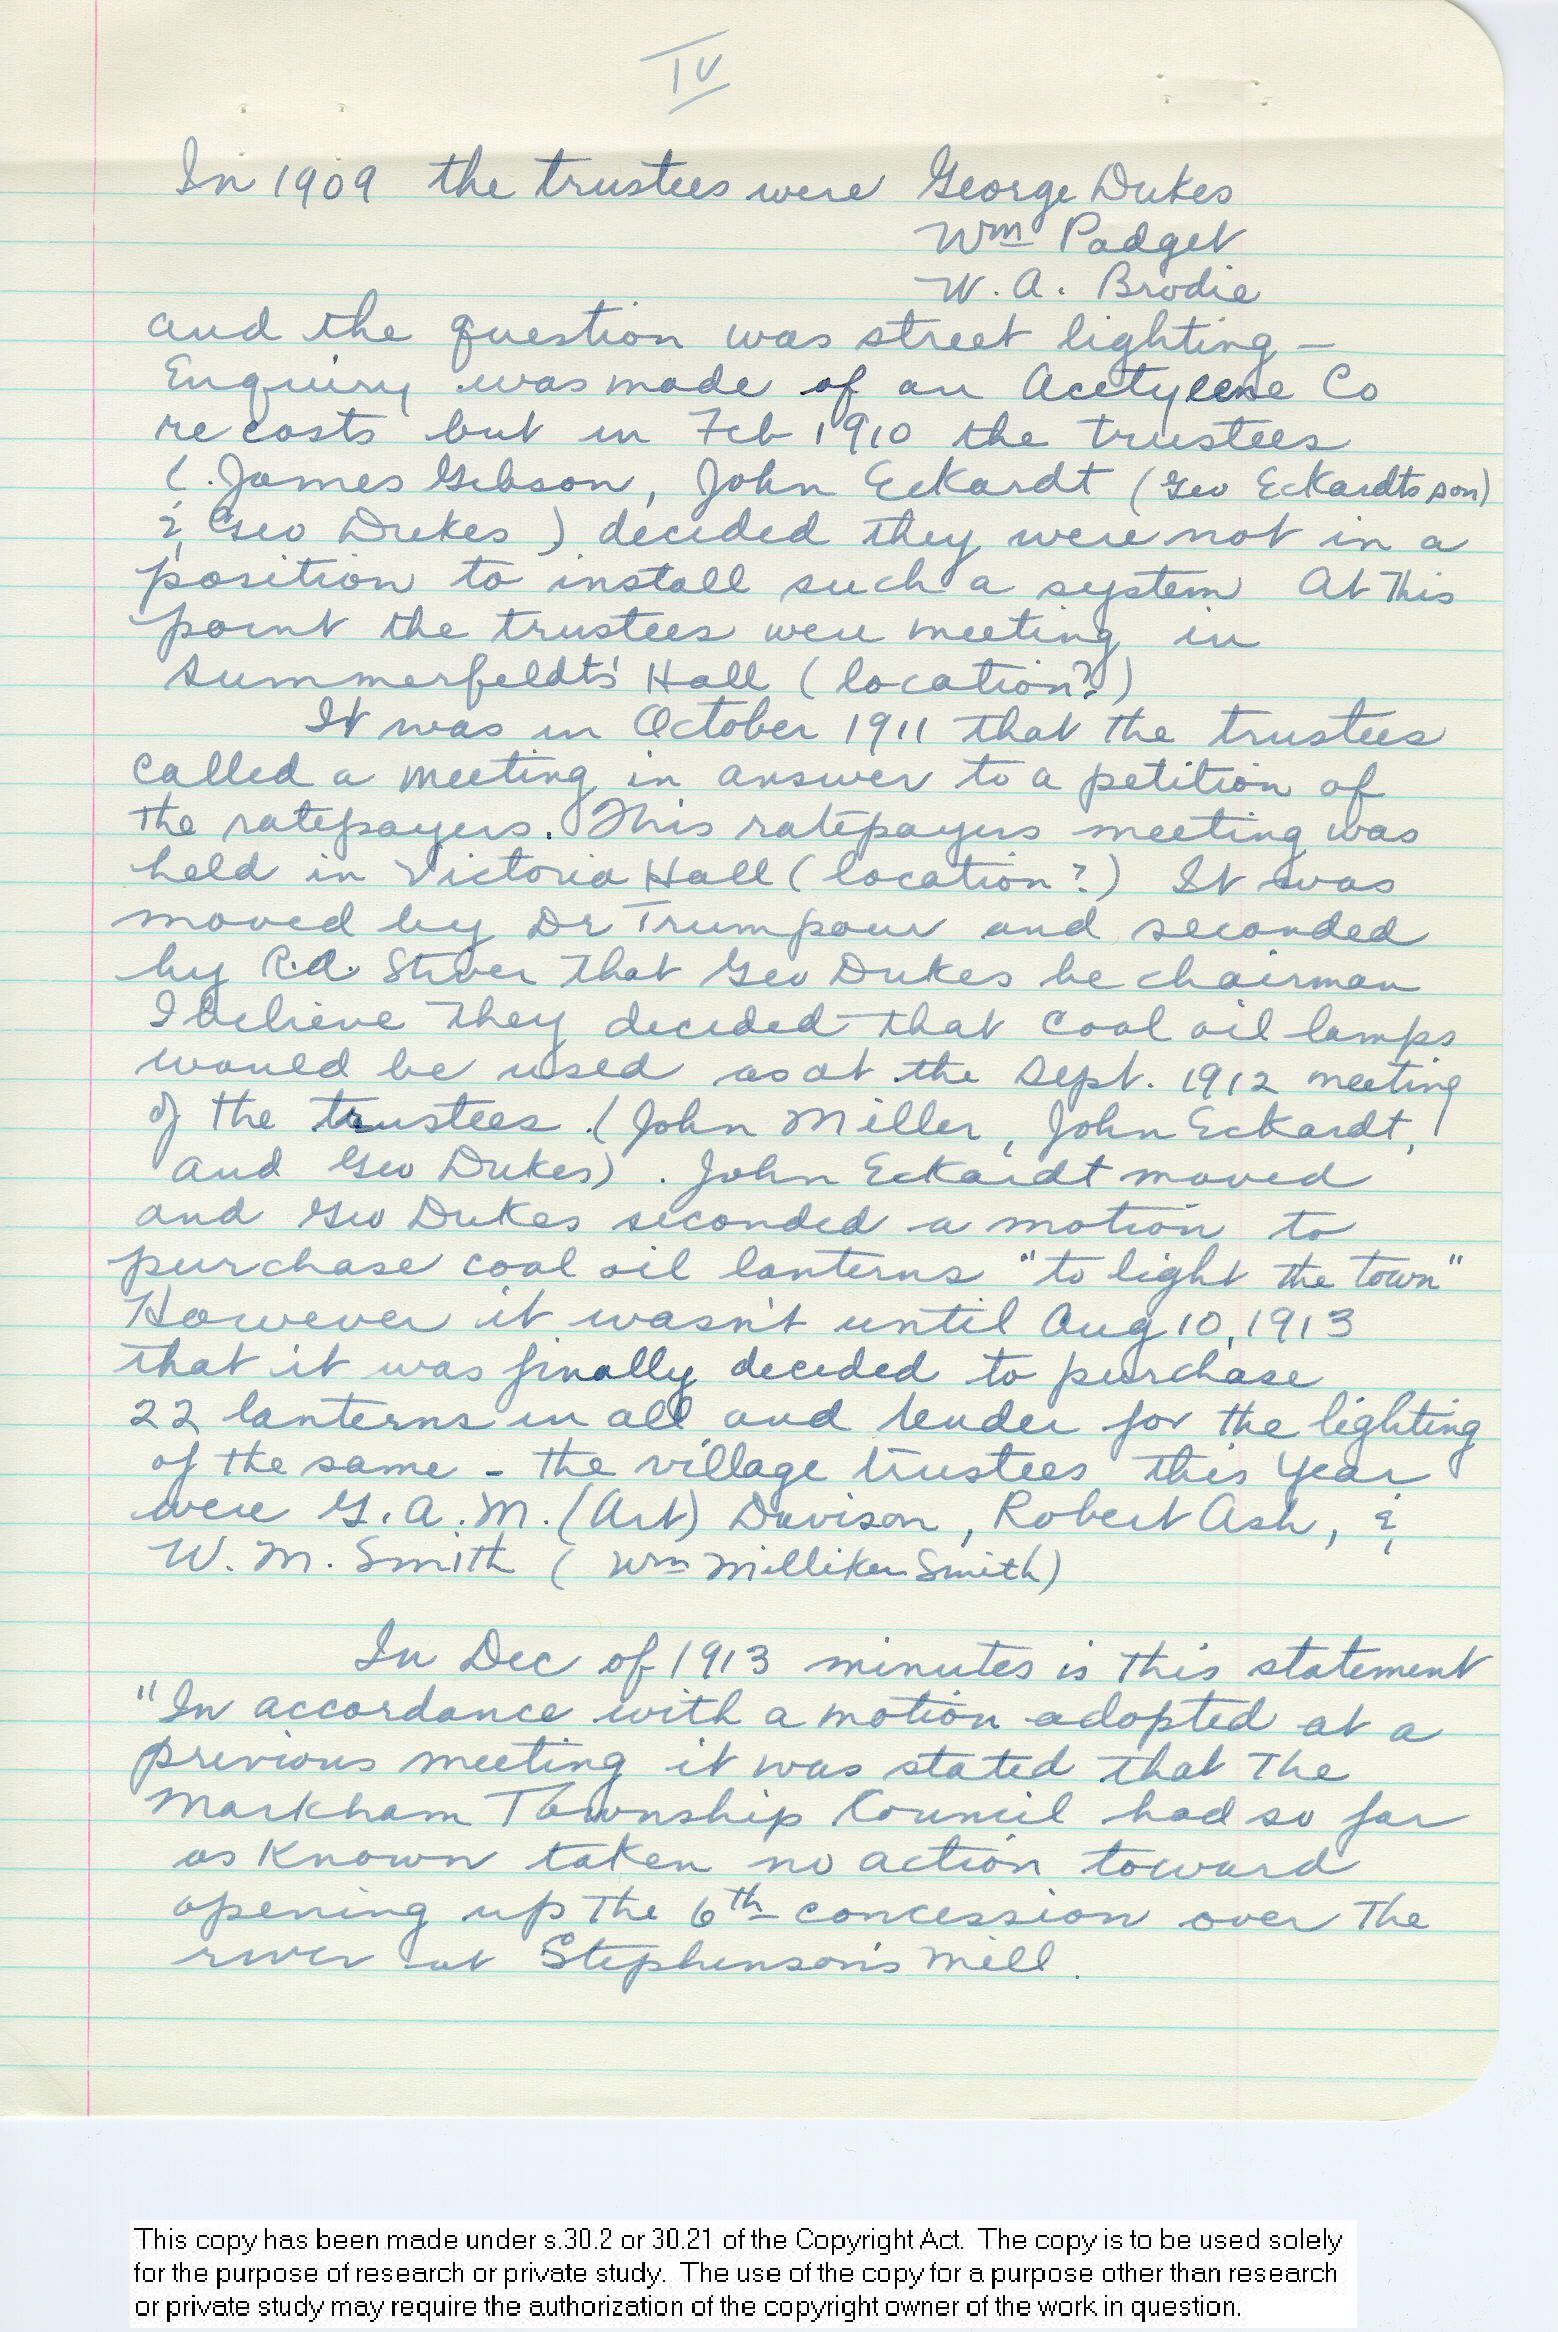 IV
In 1909 the trustees were George Dukes
Wm Padget
W. A. Brodie
and the question was street lighting –
Enquiry was made of an Acetylene Co
re costs but in Feb 1910 the trustees
(James Gibson, John Eckardt (Geo Eckardts son)
& Geo Dukes) decided they were not in a
position to install such a system At this
point the trustees were meeting in
Summerfeldts' Hall (location?)
It was in October 1911 that the trustees
called a meeting in answer to a petition of
the ratepayers. This ratepayers meeting was
held in Victoria Hall (location?) It was
moved by Dr Trumpour and seconded
by R.A. Stiver that Geo Dukes be chairman
I believe they decided that coal oil lamps
would be used as at the Sept. 1912 meeting
of the trustees (John Miller, John Eckardt,
and Geo Dukes). John Eckardt moved
and Geo Dukes seconded a motion to
purchase coal oil lanterns "to light the town"
However it wasn't until Aug 10, 1913
that it was finally decided to purchase
22 lanterns in all and tender for the lighting
of the same – the village trustees this year
were G. A. M. (Art) Davison, Robert Ash, &
W. M. Smith (Wm Milliken Smith)
In Dec of 1913 minutes is this statement
"In accordance with a motion adopted at a
previous meeting it was stated that the
Markham Township Council had so far
as known taken no action toward
opening up the 6th concession over the
river at Stephenson's Mill.
This copy has been made under s.30.2 or 30.21 of the Copyright Act. The copy is to be used solely
for the purpose of research or private study. The use of the copy for a purpose other than research
or private study may require the authorization of the copyright owner of the work in question.